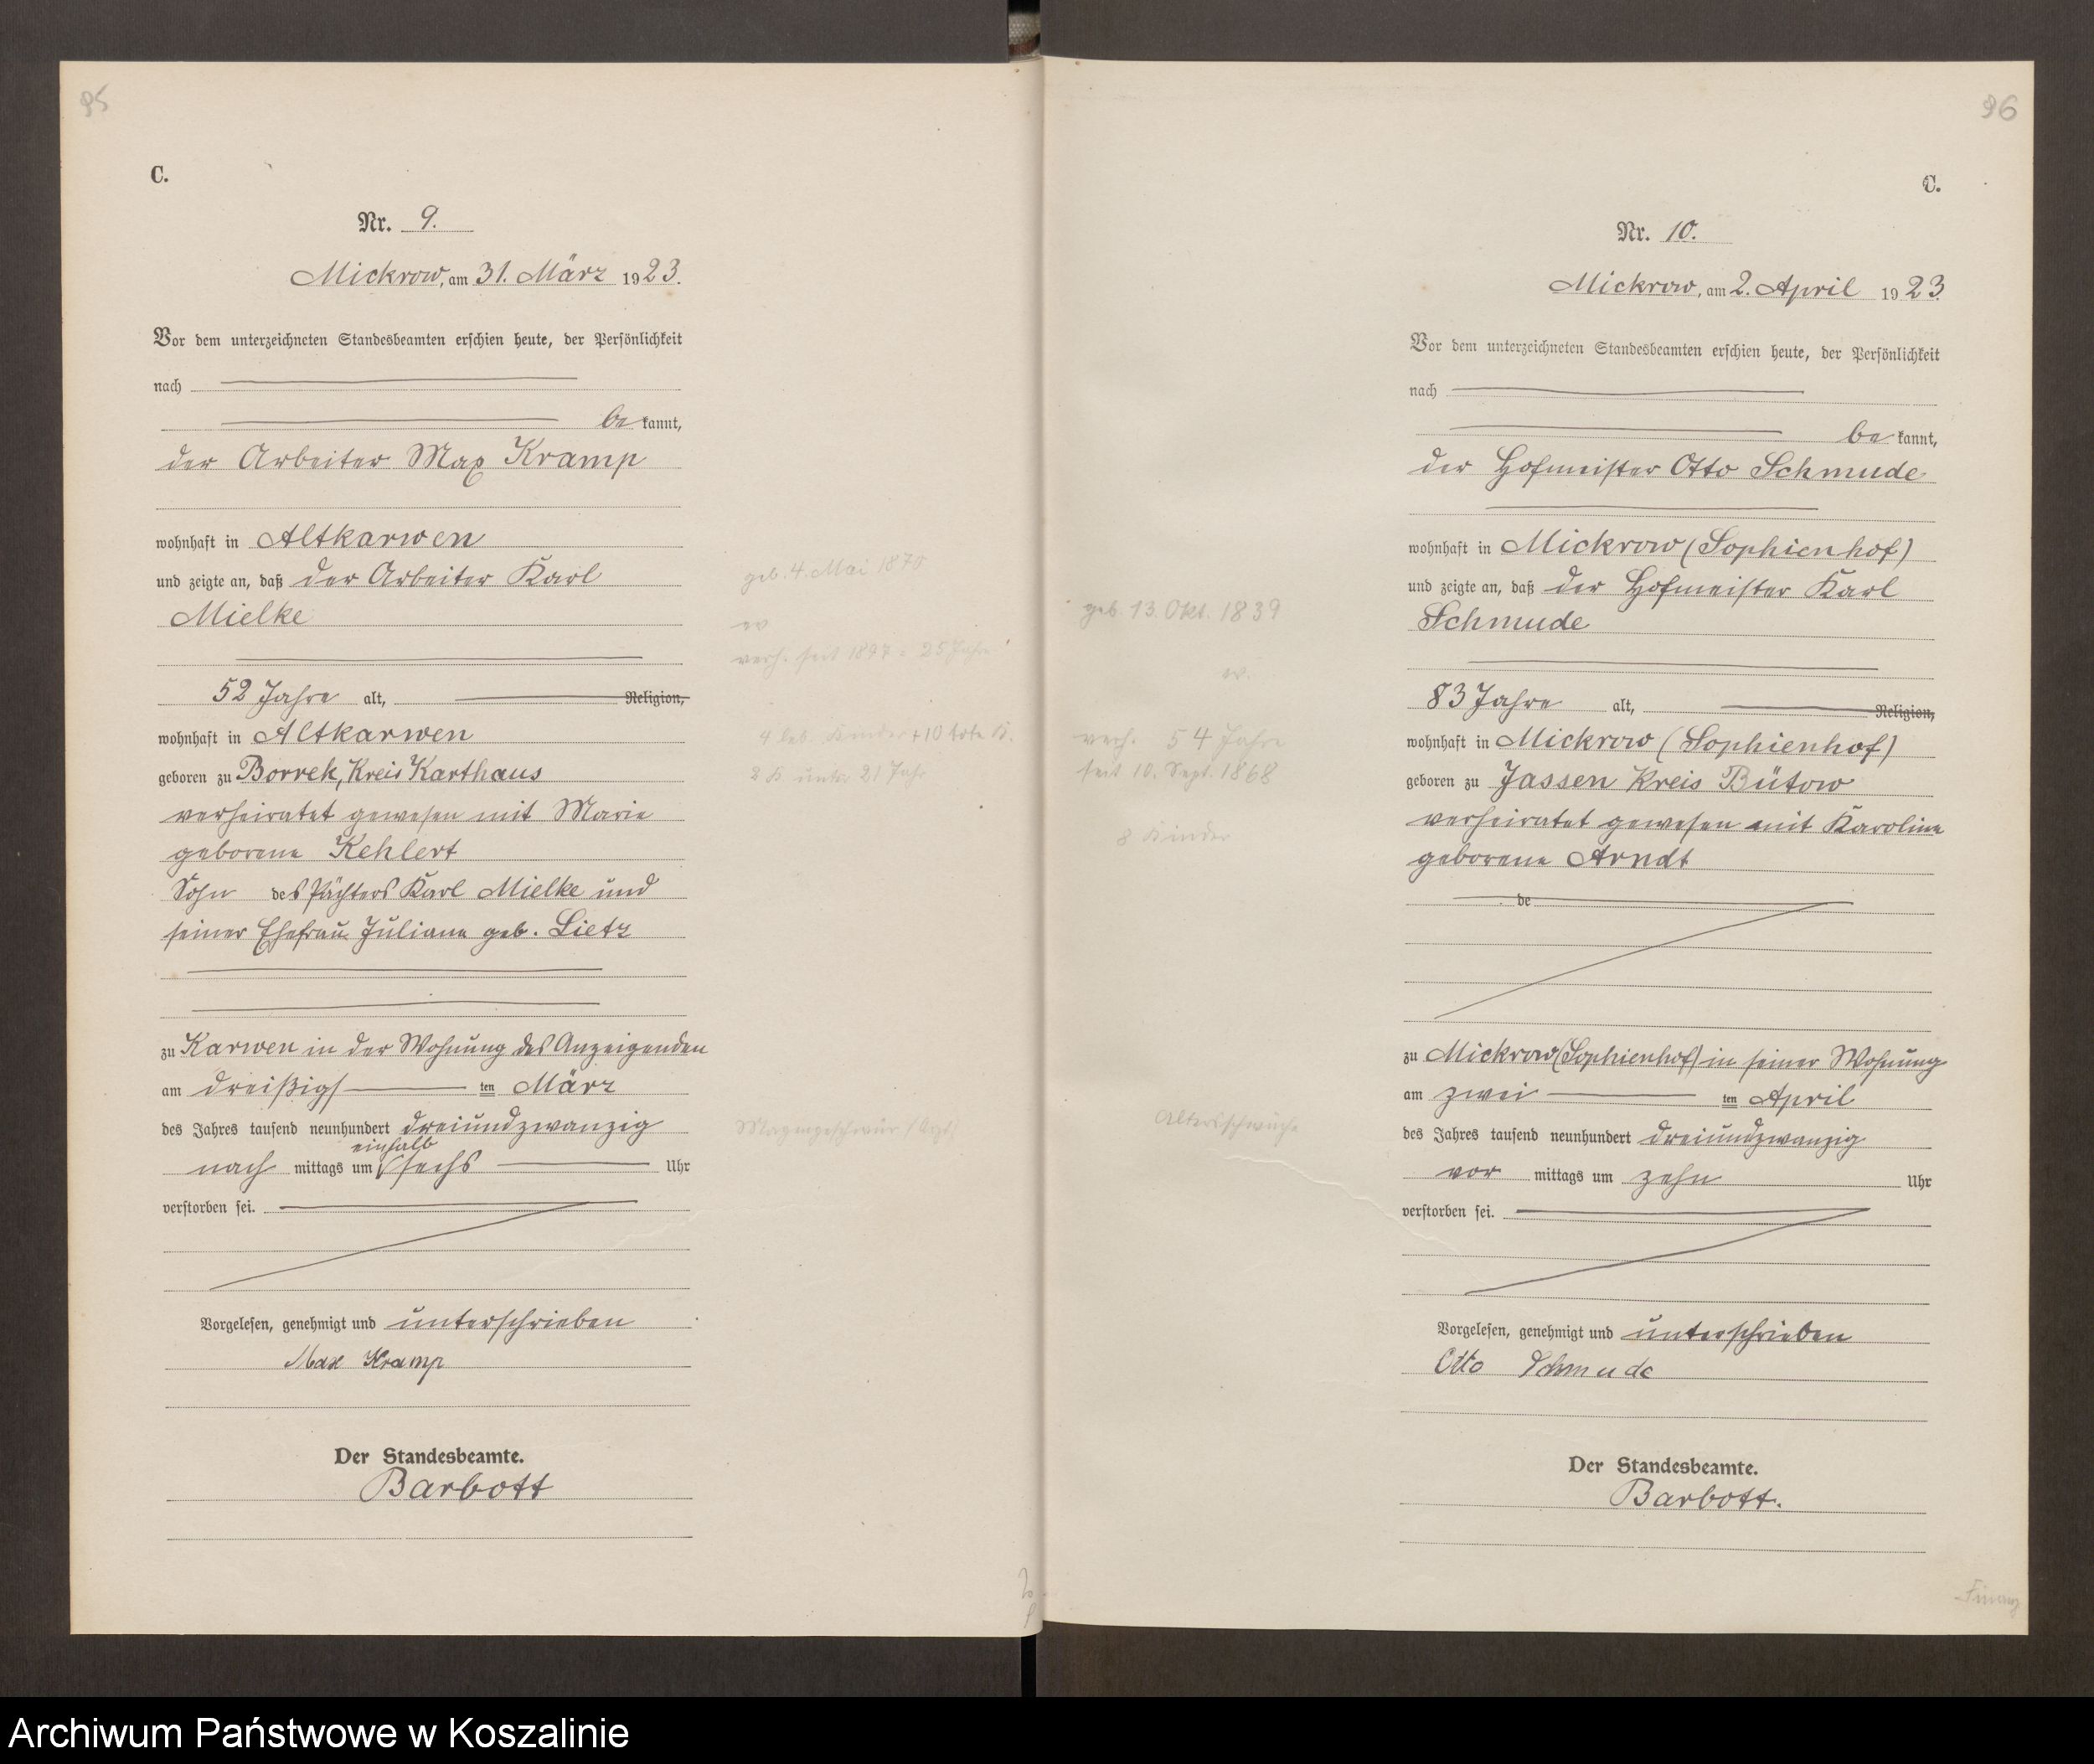 95
C.
Nr. 9.
Mickrow, am 31. März 1923.
Vor dem unterzeichneten Standesbeamten erschien heute, der Persönlichkeit
nach
be kannt,
der Arbeiter Max Kramp
wohnhaft in Altkarwen
und zeigte an, daß der Arbeiter Karl
Mielke
52 Jahre alt, Religion,
wohnhaft in Altkarwen
geboren zu Borrek, Kreis Karthaus
verheiratet gewesen mit Marie
geborene Kehlert
Sohn des Pächters Karl Mielke und
seiner Ehefrau Juliane geb. Lietz
zu Karwen in der Wohnung des Anzeigenden
am dreißigs ten März
des Jahres tausend neunhundert dreiundzwanzig
einhalb
nach mittags um sechs Uhr
verstorben sei.
Vorgelesen, genehmigt und unterschrieben
Max Kramp
Der Standesbeamte.
Barbott
geb. 4. Mai 1870
ev
verh. seit 1897 = 25 Jahre
4 leb. Kinder + 10 tote K.
2 K. unter 21 Jahr
Magengeschwür (Arzt)
96
C.
Nr. 10.
Mickrow, am 2. April 1923
Vor dem unterzeichneten Standesbeamten erschien heute, der Persönlichkeit
nach
be kannt,
der Hofmeister Otto Schmude
wohnhaft in Mickrow (Sophienhof)
und zeigte an, daß der Hofmeister Karl
Schmude
83 Jahre alt, Religion,
wohnhaft in Mickrow (Sophienhof)
geboren zu Jassen Kreis Bütow
verheiratet gewesen mit Karoline
geborene Arndt
de
zu Mickrow (Sophienhof) in seiner Wohnung
am zwei ten April
des Jahres tausend neunhundert dreiundzwanzig
vor mittags um zehn Uhr
verstorben sei.
Vorgelesen, genehmigt und unterschrieben
Otto Schmude
Der Standesbeamte.
Barbott.
geb. 13. Okt. 1839
ev.
verh. 54 Jahre
seit 10. Sept. 1868
8 Kinder
Altersschwäche
Archiwum Państwowe w Koszalinie